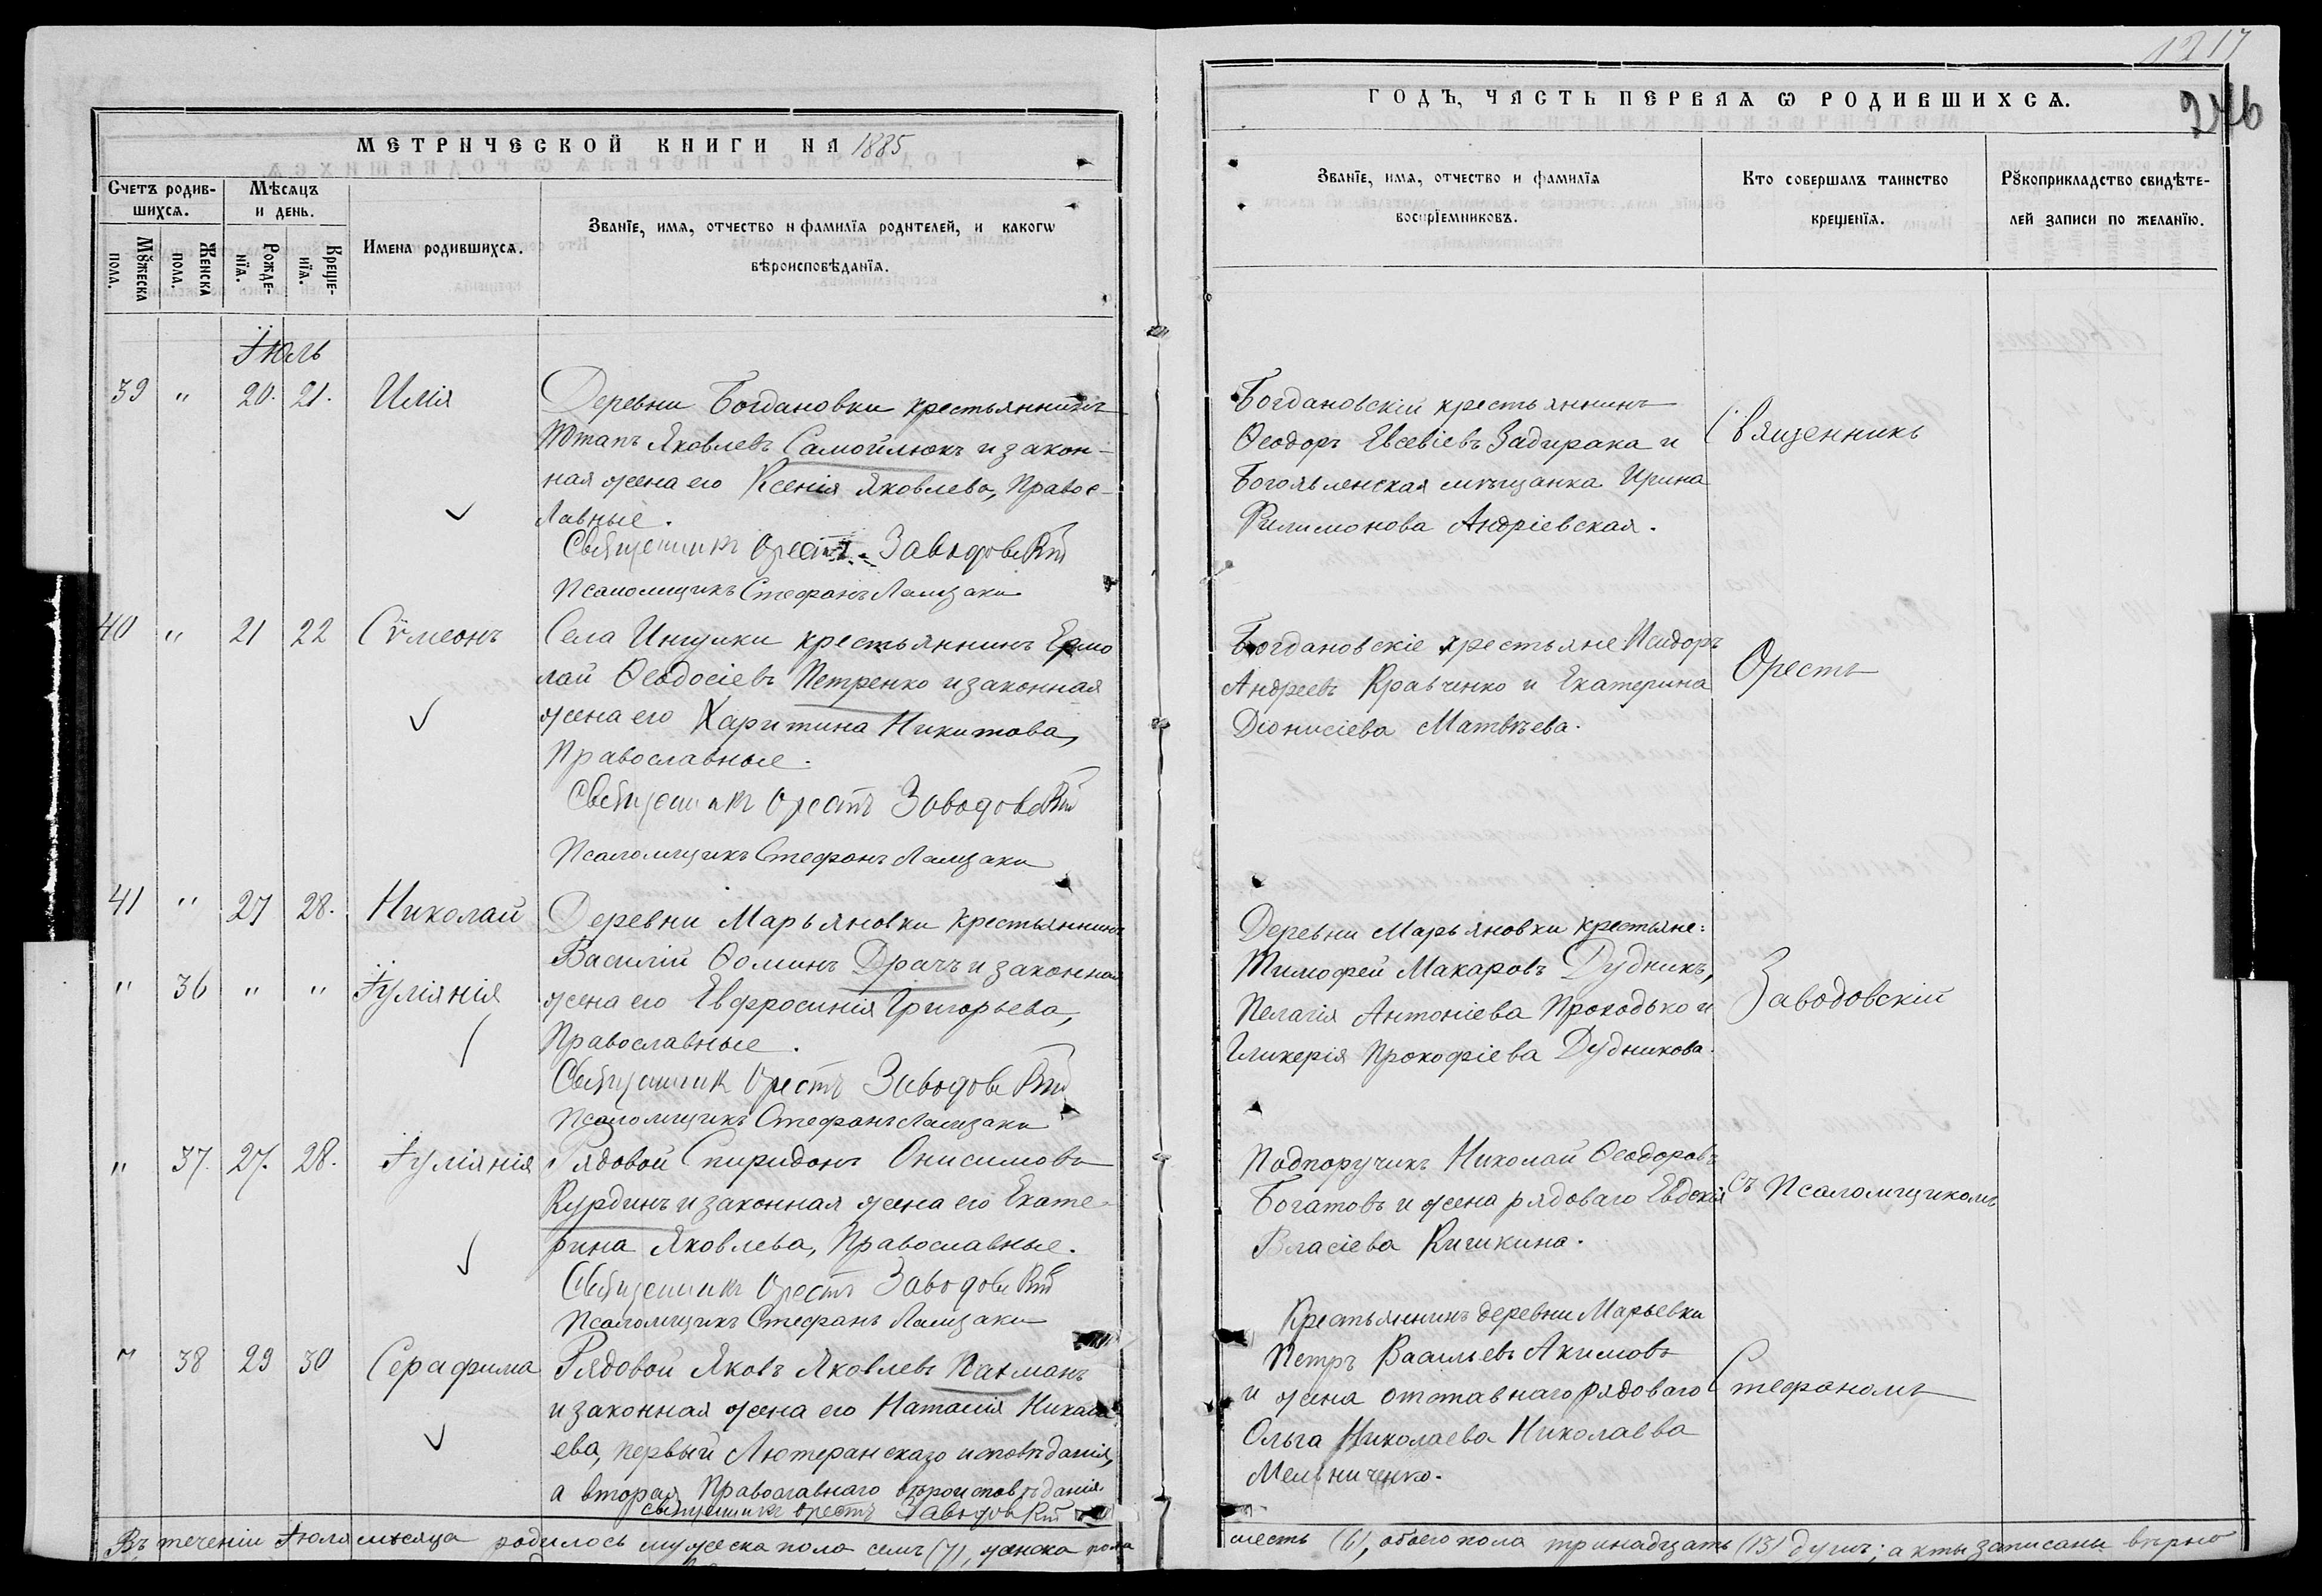 1217
246
МЕТРИЧЕСКОЙ КНИГИ НА 1885
ГОДЪ, ЧАСТЬ ПЕРВАЯ Ѡ РОДИВШИХСѦ.
Счетъ родив-
шихсѧ.
Мѣсяцъ
и день.
Мꙋжеска
пола.
Женска
пола.
Рожде-
нїѧ.
Креще-
нїѧ.
Имена родившихсѧ.
Званїе, имѧ, отчество и фамилїѧ родителей, и какогѡ
вѣроисповѣданїѧ.
Званїе, имѧ, отчество и фамилїѧ
воспрїемниковъ.
Кто совершалъ таинство
крещенїѧ.
Рꙋкоприкладство свидѣте-
лей записи по желанїю.
Їюль
39 " 20. 21. Илія
Деревни Богдановки крестьянинъ
Потапъ Яковлевъ Самойлюкъ и закон-
ная жена его Ксенія Яковлева, Правос-
лавные.
Священникъ Орестъ Заводовскій
Псаломщикъ Стефанъ
Богдановскій крестьянинъ
Ѳеодоръ Евсевіевъ Задирака и
Богоявленская мѣщанка Ирина
Филимонова Андріевская.
Священникъ
40 " 21 22 Сѵмеонъ
Села Ингулки крестьянинъ Ермо
лай Ѳеодосіевъ Петренко и законная
жена его Харитина Никитова,
Православные.
Священникъ Орестъ Заводовскій
Псаломщикъ Стефанъ
Богдановскіе крестьяне Исидоръ
Андреевъ Кравченко и Екатерина
Діонисіева Матвѣева.
Орестъ
41 " 27 28. Николай
" 36 " " Їуліянія
Деревни Марьяновки крестьянинъ
Василій Ѳоминъ Драчъ и законная
жена его Евфросинія Григорьева,
Православные.
Священникъ Орестъ Заводовскій
Псаломщикъ Стефанъ
Деревни Марьяновки крестьяне:
Тимофей Макаровъ Дудникъ,
Пелагія Антоніева Проходько и
Гликерія Прокофіева Дудникова.
Заводовскій
" 37. 27. 28. Їуліянія
Рядовой Спиридонъ Онисимовъ
Курдинъ и законная жена его Екате-
рина Яковлева, Православные.
Священникъ Орестъ Заводовскій
Псаломщикъ Стефанъ
Подпоручикъ Николай Ѳеодоровъ
Богатовъ и жена рядоваго Евдокія
Власіева Кишкина.
съ Псаломщикомъ
" 38 29 30 Серафима
Рядовой Яковъ Яковлевъ Пахманъ
и законная жена его Наталія Никола
ева, первый Лютеранскаго исповѣданія,
а вторая Православнаго вѣроисповѣданія.
Священникъ Орестъ Заводовскій
Крестьянинъ деревни Марьевки
Петръ Васильевъ Акимовъ
и жена отставнаго рядоваго
Ольга Николаева Николаева
Мельниченко.
Стефаномъ
Въ теченіи Їюля мѣсяца родилось мужеска пола семъ (7), женска пола
шесть (6), обоего пола тринадцать (13) душъ; акты записаны вѣрно